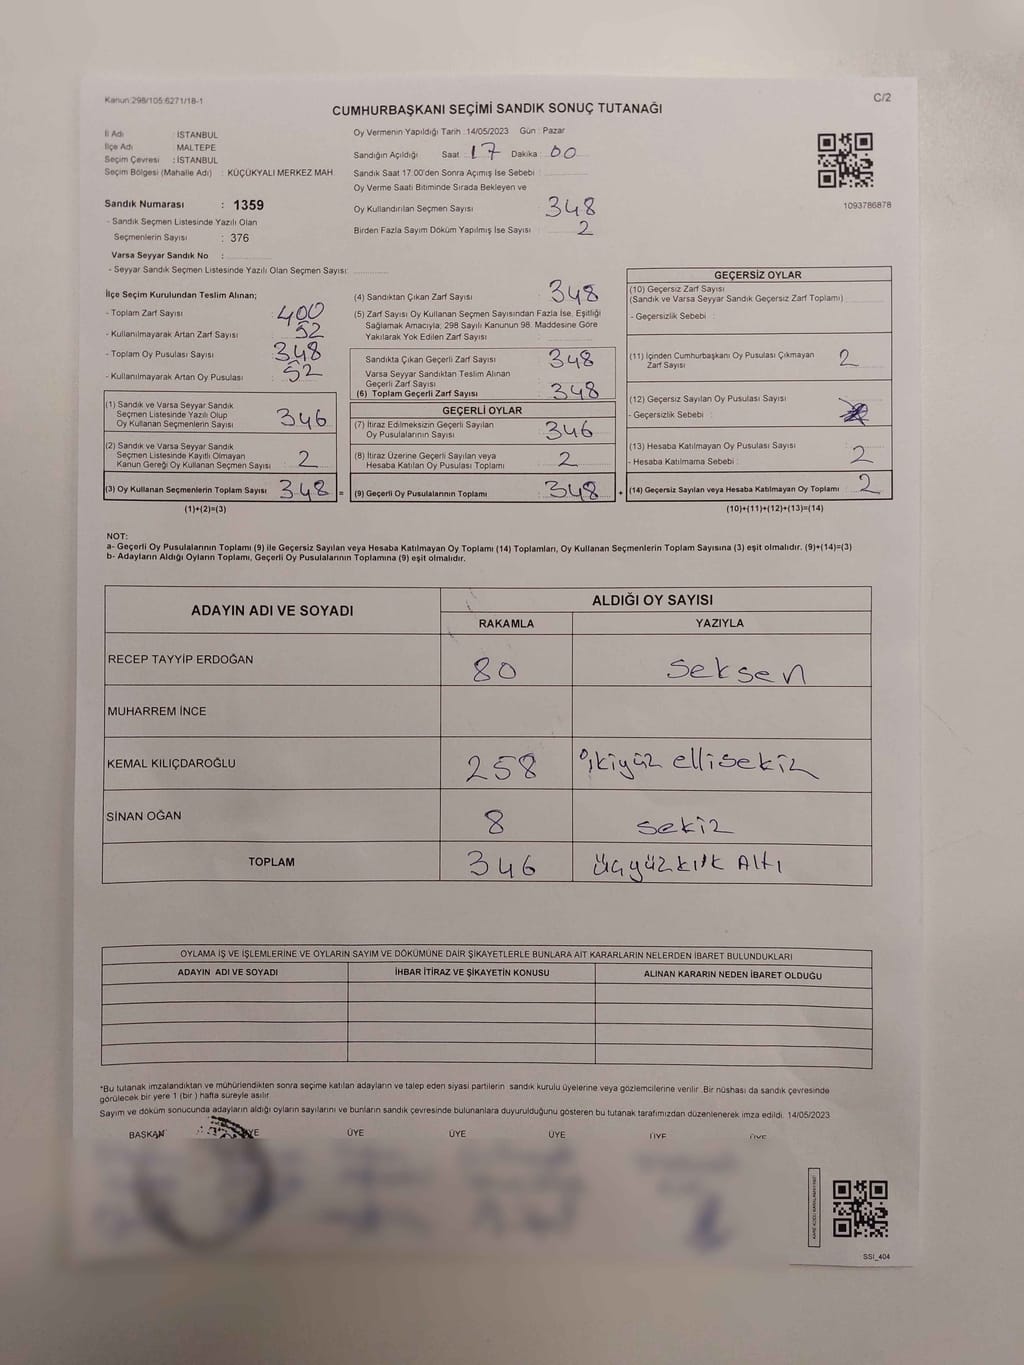 Kanun:298/105:6271/18-1
C/2
CUMHURBAŞKANI SEÇİMİ SANDIK SONUÇ TUTANAĞI
İl Adı : İSTANBUL
İlçe Adı : MALTEPE
Seçim Çevresi : İSTANBUL
Seçim Bölgesi (Mahalle Adı) : KÜÇÜKYALI MERKEZ MAH.
Sandık Numarası : 1359
- Sandık Seçmen Listesinde Yazılı Olan
Seçmenlerin Sayısı : 376
Varsa Seyyar Sandık No :
- Seyyar Sandık Seçmen Listesinde Yazılı Olan Seçmen Sayısı:
Oy Vermenin Yapıldığı Tarih :14/05/2023 Gün : Pazar
Sandığın Açıldığı Saat :17 Dakika :00
Sandık Saat 17.00'den Sonra Açımış İse Sebebi :
Oy Verme Saati Bitiminde Sırada Bekleyen ve
Oy Kullandırılan Seçmen Sayısı : 348
Birden Fazla Sayım Döküm Yapılmış İse Sayısı : 2
1093786878
İlçe Seçim Kurulundan Teslim Alınan;
- Toplam Zarf Sayısı : 400
- Kullanılmayarak Artan Zarf Sayısı : 52
- Toplam Oy Pusulası Sayısı : 348
- Kullanılmayarak Artan Oy Pusulası : 52
(1) Sandık ve Varsa Seyyar Sandık
Seçmen Listesinde Yazılı Olup
Oy Kullanan Seçmenlerin Sayısı : 346
(2) Sandık ve Varsa Seyyar Sandık
Seçmen Listesinde Kayıtlı Olmayan
Kanun Gereği Oy Kullanan Seçmen Sayısı : 2
(3) Oy Kullanan Seçmenlerin Toplam Sayısı : 348
(1)+(2)=(3)
(4) Sandıktan Çıkan Zarf Sayısı : 348
(5) Zarf Sayısı Oy Kullanan Seçmen Sayısından Fazla İse, Eşitliği
Sağlamak Amacıyla; 298 Sayılı Kanunun 98. Maddesine Göre
Yakılarak Yok Edilen Zarf Sayısı :
Sandıkta Çıkan Geçerli Zarf Sayısı : 348
Varsa Seyyar Sandıktan Teslim Alınan
Geçerli Zarf Sayısı
(6) Toplam Geçerli Zarf Sayısı : 348
GEÇERLİ OYLAR
(7) İtiraz Edilmeksizin Geçerli Sayılan
Oy Pusulalarının Sayısı : 346
(8) İtiraz Üzerine Geçerli Sayılan veya
Hesaba Katılan Oy Pusulası Toplamı : 2
= (9) Geçerli Oy Pusulalarının Toplamı : 348
GEÇERSİZ OYLAR
(10) Geçersiz Zarf Sayısı
(Sandık ve Varsa Seyyar Sandık Geçersiz Zarf Toplamı)
- Geçersizlik Sebebi :
(11) İçinden Cumhurbaşkanı Oy Pusulası Çıkmayan
Zarf Sayısı 2
(12) Geçersiz Sayılan Oy Pusulası Sayısı
- Geçersizlik Sebebi :
(13) Hesaba Katılmayan Oy Pusulası Sayısı
- Hesaba Katılmama Sebebi : 2
+ (14) Geçersiz Sayılan veya Hesaba Katılmayan Oy Toplamı : 2
(10)+(11)+(12)+(13)=(14)
NOT:
a- Geçerli Oy Pusulalarının Toplamı (9) ile Geçersiz Sayılan veya Hesaba Katılmayan Oy Toplamı (14) Toplamları, Oy Kullanan Seçmenlerin Toplam Sayısına (3) eşit olmalıdır. (9)+(14)=(3)
b- Adayların Aldığı Oyların Toplamı, Geçerli Oy Pusulalarının Toplamına (9) eşit olmalıdır.
ADAYIN ADI VE SOYADI
ALDIĞI OY SAYISI
RAKAMLA YAZIYLA
RECEP TAYYİP ERDOĞAN 80 seksen
MUHARREM İNCE
KEMAL KILIÇDAROĞLU 258 ikiyüz ellisekiz
SİNAN OĞAN 8 sekiz
TOPLAM 346 üçyüzkırk Altı
OYLAMA İŞ VE İŞLEMLERİNE VE OYLARIN SAYIM VE DÖKÜMÜNE DAİR ŞİKAYETLERLE BUNLARA AİT KARARLARIN NELERDEN İBARET BULUNDUKLARI
ADAYIN ADI VE SOYADI İHBAR İTİRAZ VE ŞİKAYETİN KONUSU ALINAN KARARIN NEDEN İBARET OLDUĞU
*Bu tutanak imzalandıktan ve mühürlendikten sonra seçime katılan adayların ve talep eden siyasi partilerin sandık kurulu üyelerine veya gözlemcilerine verilir. Bir nüshası da sandık çevresinde
görülecek bir yere 1 (bir ) hafta süreyle asılır.
Sayım ve döküm sonucunda adayların aldığı oyların sayılarını ve bunların sandık çevresinde bulunanlara duyurulduğunu gösteren bu tutanak tarafımızdan düzenlenerek imza edildi. 14/05/2023
BAŞKAN ÜYE ÜYE ÜYE ÜYE ÜYE ÜYE
SSI_404